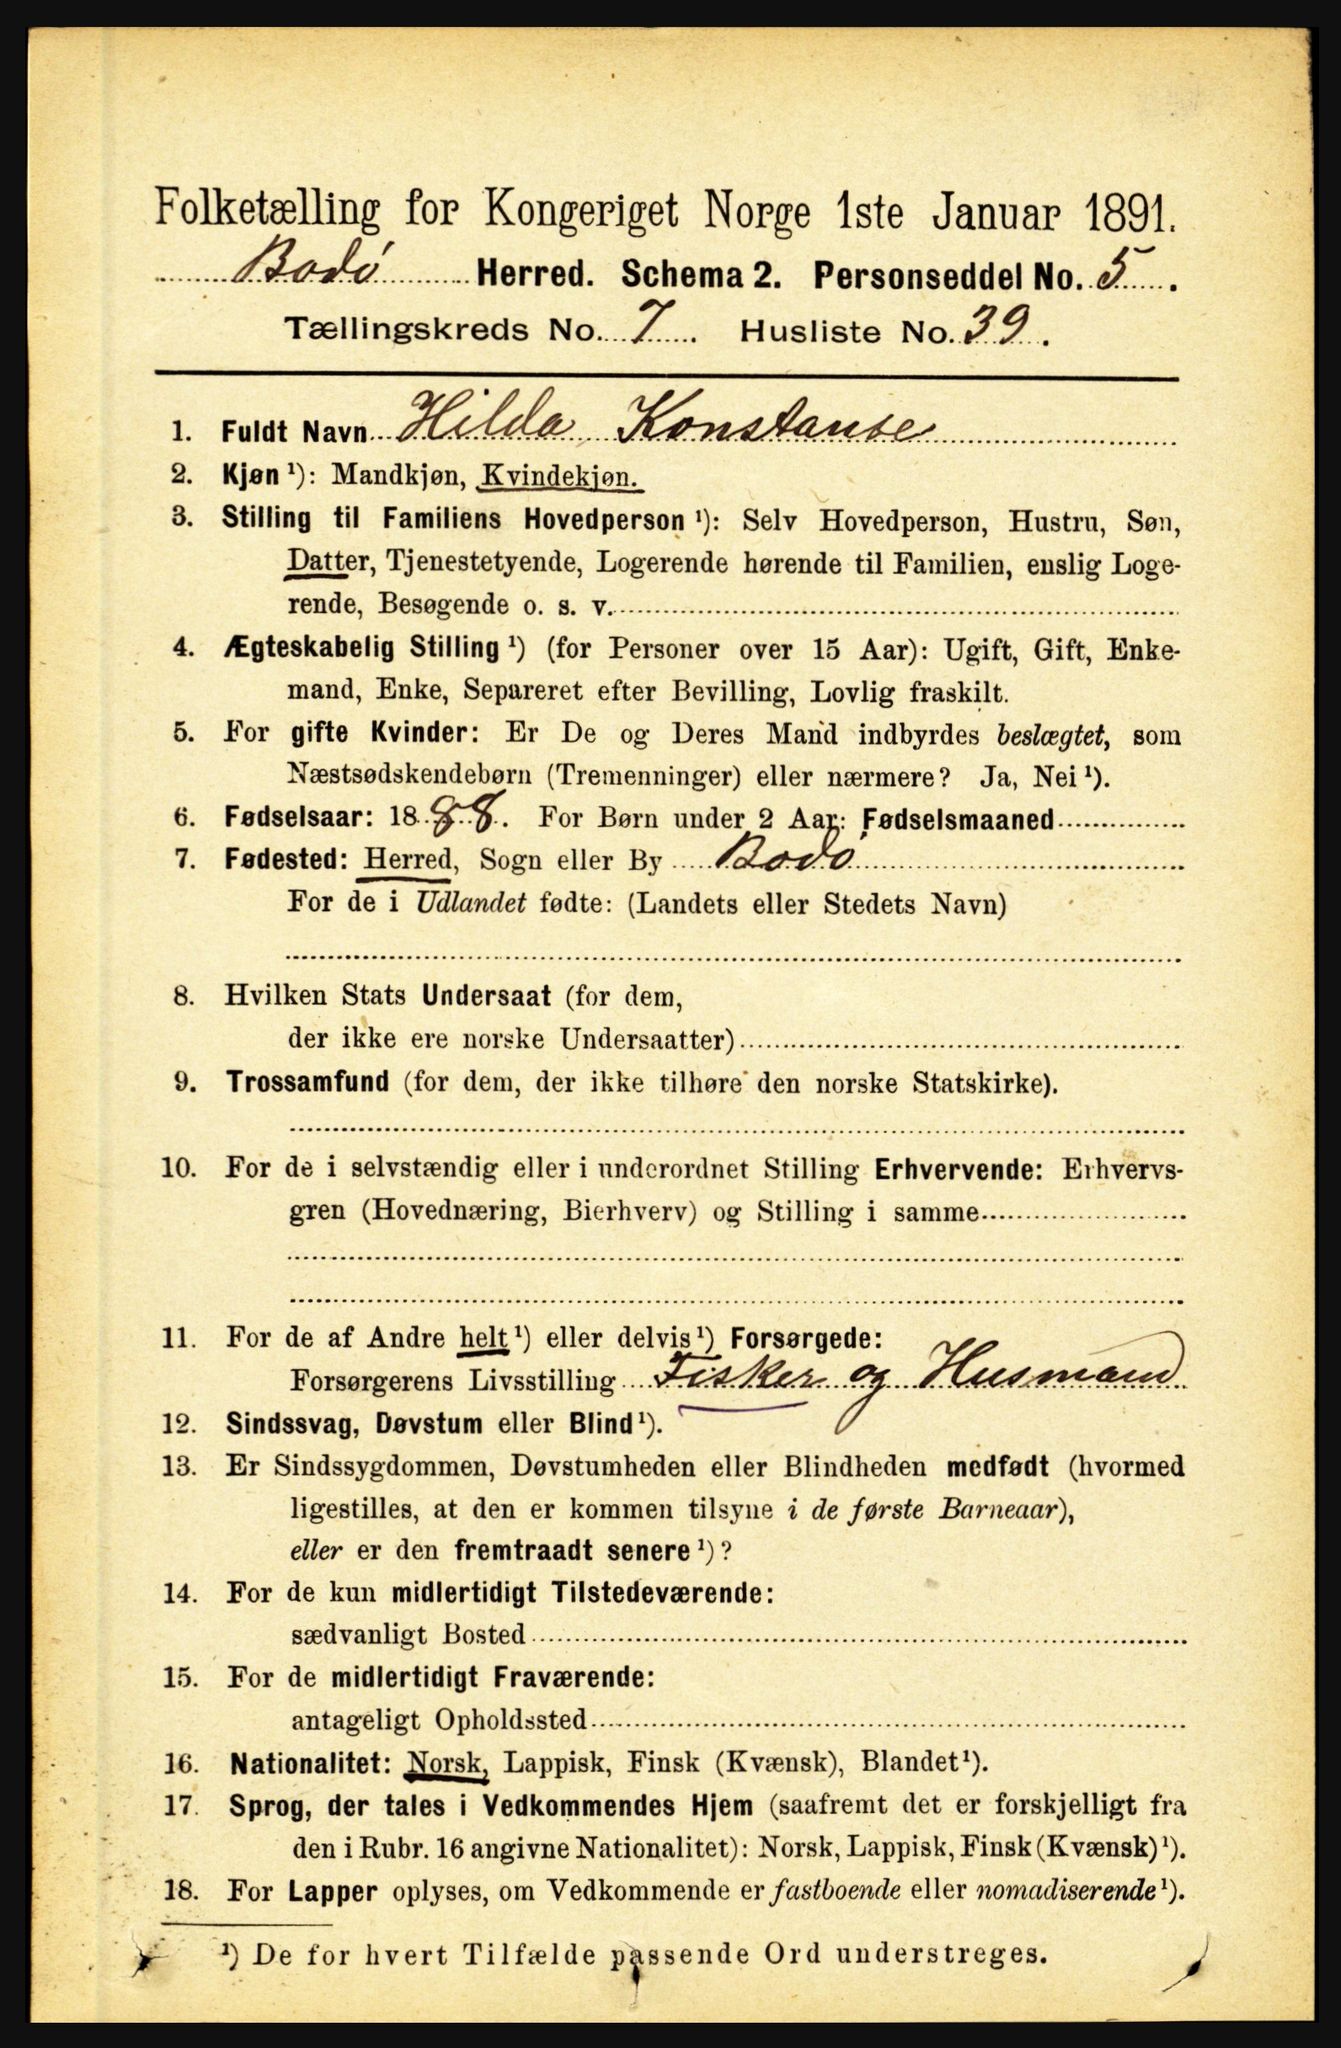 Folketælling for Kongeriget Norge 1ste Januar 1891.
Bodø Herred. Schema 2. Personseddel No. 5.
Tællingskreds No. 7. Husliste No. 39.
1. Fuldt Navn Hilda Konstanse
2. Kjøn ¹): Mandkjøn, Kvindekjøn.
3. Stilling til Familiens Hovedperson ¹): Selv Hovedperson, Hustru, Søn,
Datter, Tjenestetyende, Logerende hørende til Familien, enslig Loge-
rende, Besøgende o. s. v.
4. Ægteskabelig Stilling ¹) (for Personer over 15 Aar): Ugift, Gift, Enke-
mand, Enke, Separeret efter Bevilling, Lovlig fraskilt.
5. For gifte Kvinder: Er De og Deres Mand indbyrdes beslægtet, som
Næstsødskendebørn (Tremenninger) eller nærmere? Ja, Nei ¹).
6. Fødselsaar: 1888. For Børn under 2 Aar: Fødselsmaaned
7. Fødested: Herred, Sogn eller By Bodø
For de i Udlandet fødte: (Landets eller Stedets Navn)
8. Hvilken Stats Undersaat (for dem,
der ikke ere norske Undersaatter)
9. Trossamfund (for dem, der ikke tilhøre den norske Statskirke).
10. For de i selvstændig eller i underordnet Stilling Erhvervende: Erhvervs-
gren (Hovednæring, Bierhverv) og Stilling i samme
11. For de af Andre helt ¹) eller delvis ¹) Forsørgede:
Forsørgerens Livsstilling Fisker og Husmand
12. Sindssvag, Døvstum eller Blind ¹).
13. Er Sindssygdommen, Døvstumheden eller Blindheden medfødt (hvormed
ligestilles, at den er kommen tilsyne i de første Barneaar),
eller er den fremtraadt senere ¹)?
14. For de kun midlertidigt Tilstedeværende:
sædvanligt Bosted
15. For de midlertidigt Fraværende:
antageligt Opholdssted
16. Nationalitet: Norsk, Lappisk, Finsk (Kvænsk), Blandet ¹).
17. Sprog, der tales i Vedkommendes Hjem (saafremt det er forskjelligt fra
den i Rubr. 16 angivne Nationalitet): Norsk, Lappisk, Finsk (Kvænsk) ¹).
18. For Lapper oplyses, om Vedkommende er fastboende eller nomadiserende ¹).
¹) De for hvert Tilfælde passende Ord understreges.